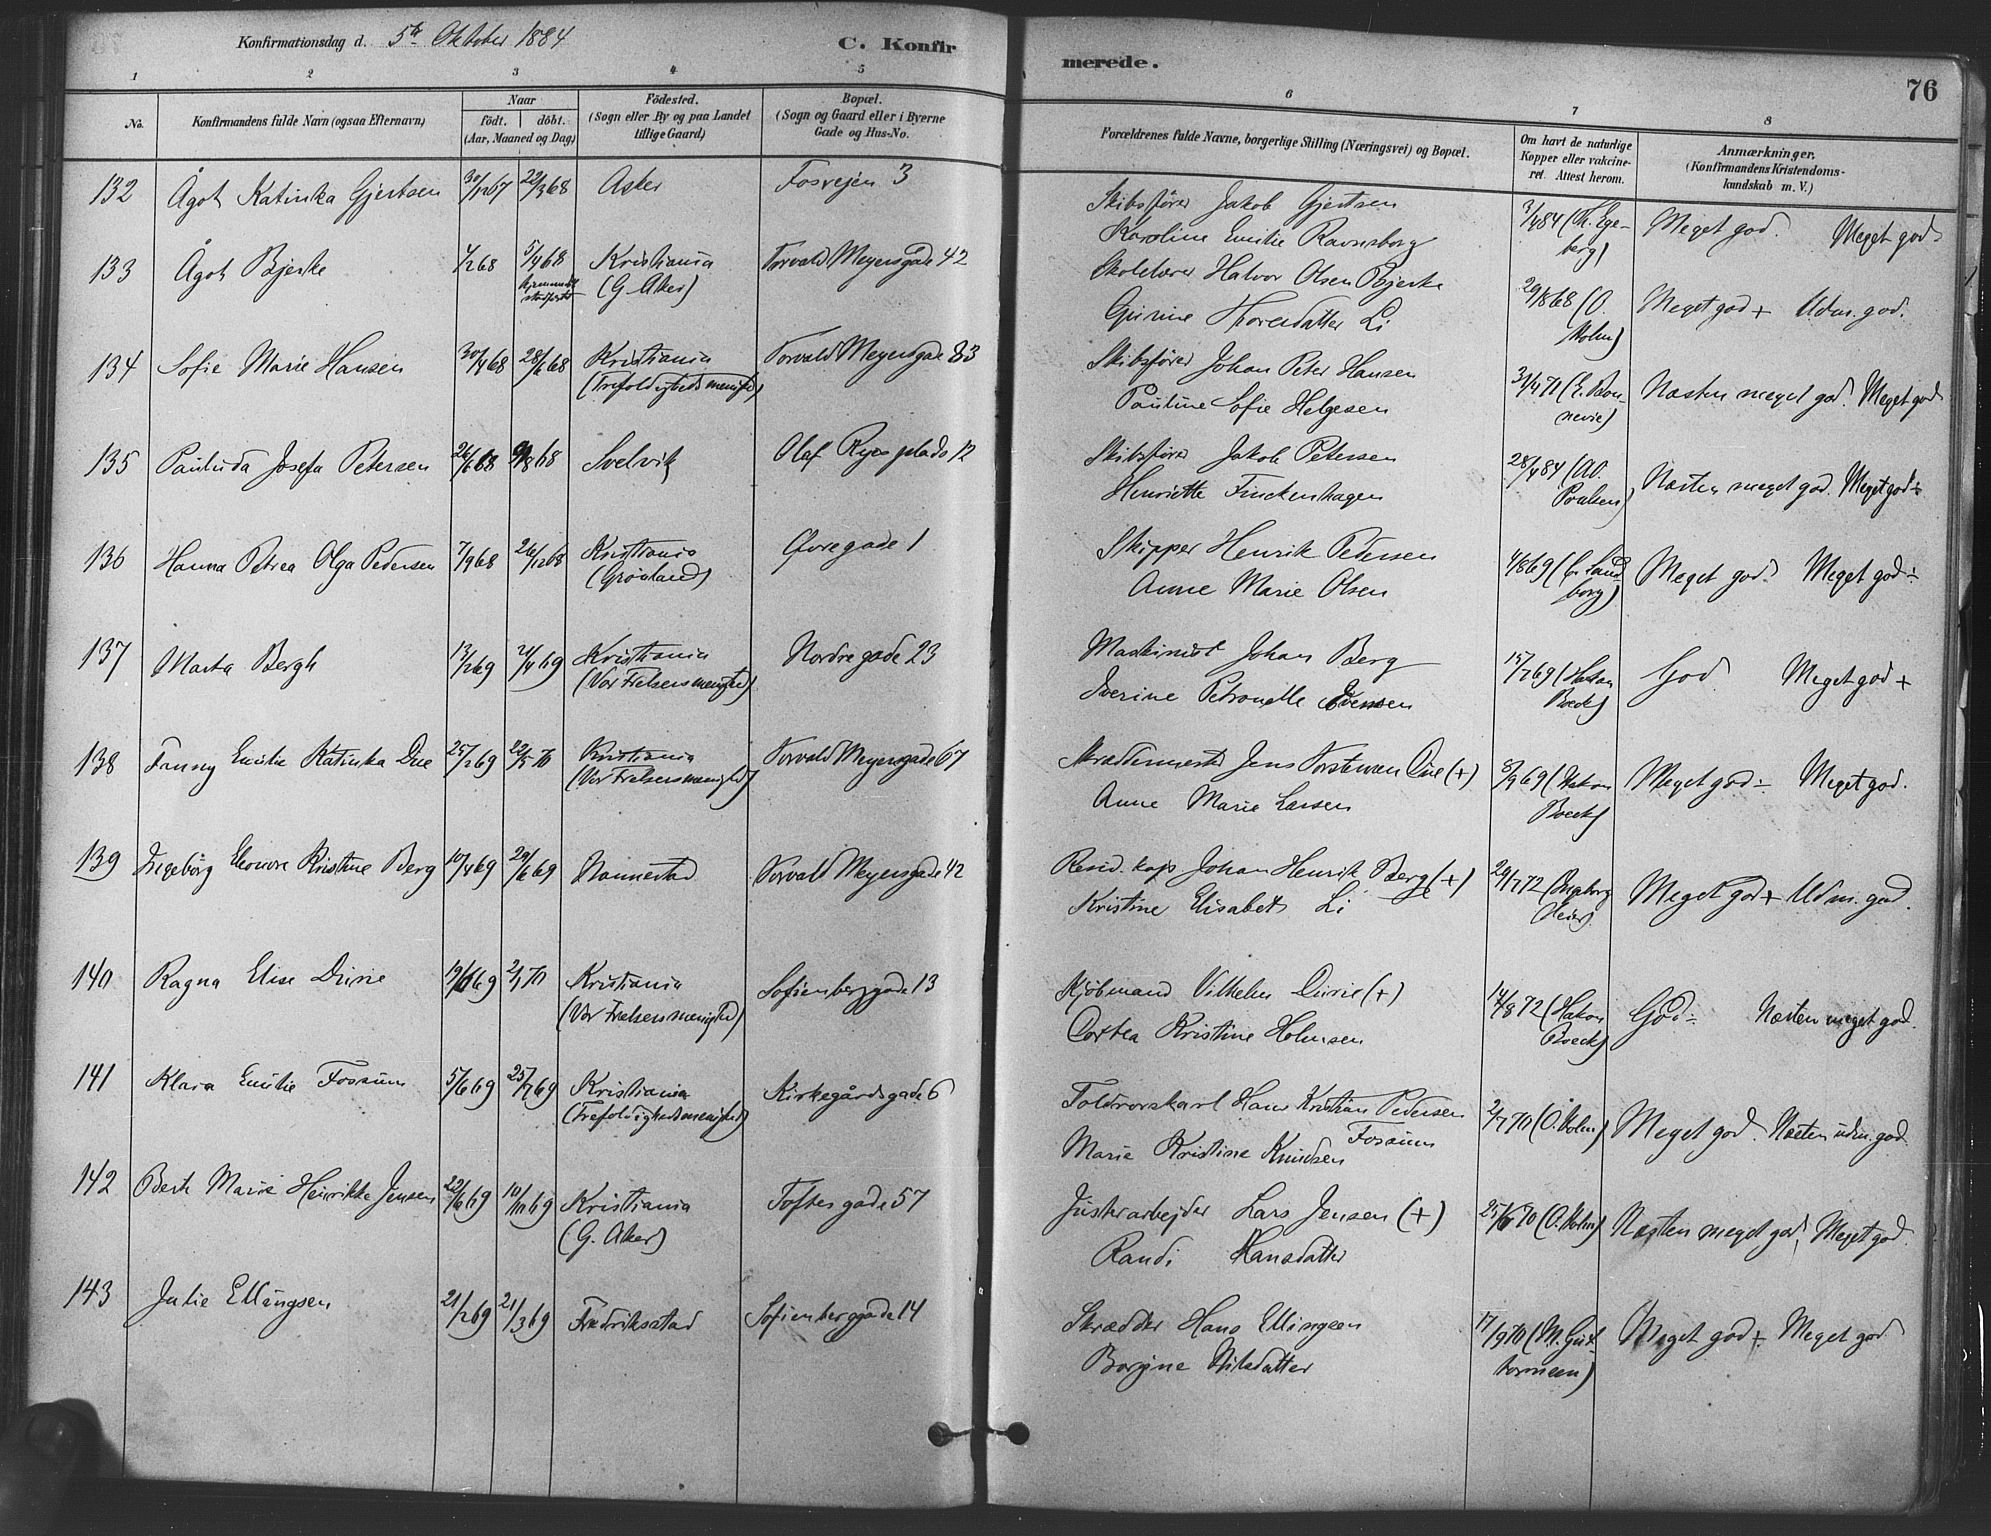 Konfirmationsdag d. 5te Oktober 1884
C. Konfir
merede.
76
1 2 3 4 5 6 7 8
No.
Konfirmandens fulde Navn (ogsaa Efternavn)
Naar
födt. döbt.
(Aar, Maaned og Dag)
Födested.
(Sogn eller By og paa Landet
tillige Gaard)
Bopæl.
(Sogn og Gaard eller i Byerne
Gade og Hus-No.
Forældrenes fulde Navne, borgerlige Stilling (Næringsvei) og Bopæl.
Om havt de naturlige
Kopper eller vakcine-
ret. Attest herom.
Anmærkninger.
(Konfirmandens Kristendoms-
kundskab m. V.)
132 Ågot Katinka Gjertsen 30/12 67 22/3 68 Asker Fosvejen 3 Skibsfører Jakob Gjertsen 3/4 84 (Th. Ege- Meget god. Meget god
Karoline Emilie Ravnsborg berg)
133 Ågot Bjerke 4/2 68 5/4 68 Kristiania Torvald Meyersgade 42 Skolelærer Halvor Olsen Bjerke 29/8 68 (O. Meget god + Udm. god.
(G. Aker) Gurine Thorsdatter Li Holm)
134 Sofie Marie Hansen 30/4 68 28/6 68 Kristiania Torvald Meyersgade 33 Skibsfører Johan Peter Hansen 31/4 71 (E. Bon- Næsten meget god. Meget god
(Trefoldighedsmenighed) Pauline Sofie Helgesen nevie)
135 Paulida Josefa Petersen 26/6 68 9/8 68 Svelvik Olaf Ryes plads 12 Skibsfører Jakob Petersen 28/4 84 (Ad. Næsten meget god. Meget god ÷
Henriette Finckenhagen Poulsen)
136 Hanna Petrea Olga Pedersen 7/9 68 26/12 68 Kristiania Øvregade 1 Skipper Henrik Pedersen 4/8 69 (C. Sand- Meget god. Meget god ÷
(Grønland) Anne Marie Olsen borg)
137 Marta Bergh 13/2 69 2/4 69 Kristiania Nordregade 23 Maskinist Johan Berg 15/7 69 (Hakon God. Meget god +
(Vor Frelsers menighed) Iverine Petronelle Evensen Boeck)
138 Fanny Emilie Katinka Due 25/2 69 22/5 70 Kristiania Torvald Meyersgade 67 Skræddermester Jens Torstensen Due (+) 8/9 69 (Hakon Meget god ÷ Meget god.
(Vor Frelsers menighed) Anne Marie Larsen Boeck)
139 Ingeborg Eleonore Kristine Berg 10/4 69 29/6 69 Nannestad Torvald Meyersgade 42 Resid. kap. Johan Henrik Berg (+) 29/7 72 (Ingeborg Meget god + Udm. god.
Kristine Elisabet Li Heier)
140 Ragna Elise Durie 19/6 69 2/1 70 Kristiania Sofienberggade 13 Kjøbmand Vilhelm Durie (+) 14/8 72 (Hakon God ÷ Næsten meget god.
(Vor Frelsers menighed) Dortea Kristine Holmsen Boeck)
141 Klara Emilie Fossum 5/6 69 25/7 69 Kristiania Kirkegårdsgade 6 Toldrorskarl Hans Kristian Pedersen 2/7 70 (O. Holm) Meget god. Næsten udm. god.
(Trefoldighedsmenighed) Fossum
Marie Kristine Knudsen
142 Berte Marie Henrikke Jensen 10/10 69 Kristiania Toftesgade 57 Justerarbejder Lars Jensen (+) (O. Holm) Næsten meget god, Meget god.
(G. Aker) Randi Hansdatter
143 Julie Ellingsen 21/2 69 21/3 69 Fredriksstad Sofienberggade 14 Skrædder Hans Ellingsen 17/9 70 (M. Gut- Meget god + Meget god
Borgine Nilsdatter tormsen)